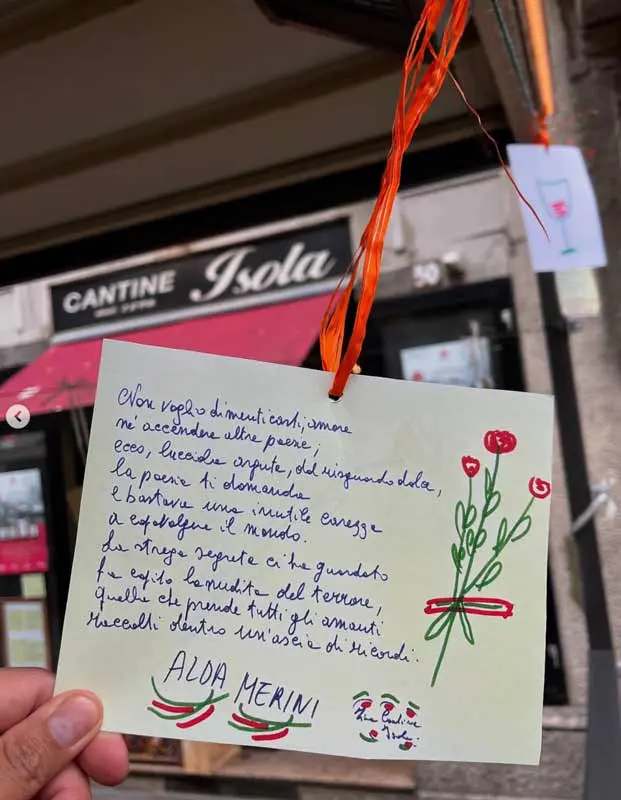 CANTINE
Isola
50
Non voglio dimenticarti, amore
né accendere altre poesie;
ecco, lucciola arguta, dal risguardo dolce,
la poesia ti domanda
e bastava una inutile carezza
a capovolgere il mondo.
La strega segreta ci ha guardato
ha capito la nudità del terrore,
quella che prende tutti gli amanti
raccolti dentro un'ascia di ricordi.
ALDA MERINI
Cantine
Isola